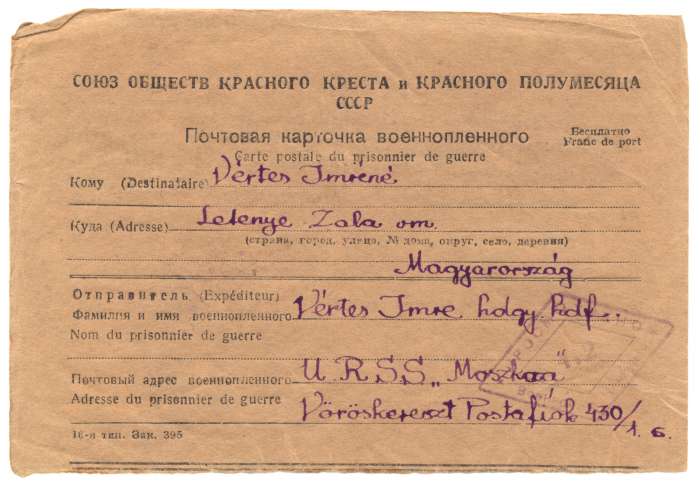 СОЮЗ ОБЩЕСТВ КРАСНОГО КРЕСТА и КРАСНОГО ПОЛУМЕСЯЦА
СССР
Почтовая карточка военнопленного
Бесплатно
Franc de port
Carte postale du prisonnier de guerre
Кому (Destinataire) Vértes Imréné
Куда (Adresse) Letenye Zala vm.
(страна, город, улица, № дома, округ, село, деревня)
Magyarország
Отправитель (Expéditeur)
Фамилия и имя военнопленного Vértes Imre hdgy. hdf.
Nom du prisonnier de guerre
Почтовый адрес военнопленного U.R.S.S. „Moszkva"
Adresse du prisonnier de guerre Vöröskereszt Postafiok 430/1. 6.
16-я тип. Зак. 395